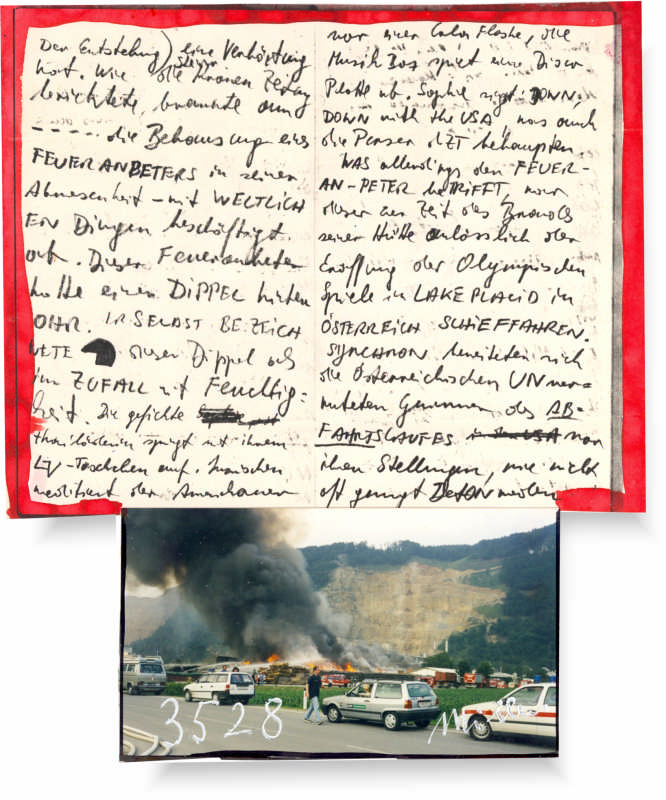 Der Entstehung) eine Verhärtung
hat. Wie die Kronen Zeitung
berichtete, brannte am
----- die Behausung eines
FEUERANBETERS in seiner
Abwesenheit – mit WELTLICH
EN Dingen beschäftigt
ab. Dieser Feueranbeter
hatte einen DIPPEL hinten
OHR. IR SELBST BEZEICH
NETE dieser Dippel als
im ZUFALL mit Feuchtig-
keit. Die gefickte
springt mit ihrem
Täschchen auf. Inzwischen
meditiert der Amerikaner
vor einer Cola Flasche, die
Musik Box spielt eine Disco
Platte ab. Sophie singt: DOWN,
DOWN with the USA, was auch
die Perser dZT behaupten.
WAS allerdings den FEUER-
AN-PETER beTRIFFT, war
dieser zur Zeit des Brandes
seiner Hütte anlässlich der
Eröffnung der Olympischen
Spiele in LAKE PLACID in
ÖSTERREICH SCHIEFFAHREN.
SYNCHRON bereiteten sich
die Österreichischen UNver-
muteten Gewinner des AB-
FAHRTSLAUFES von
ihren Stellungen, wie nicht
oft genügt BetoN werden
3528